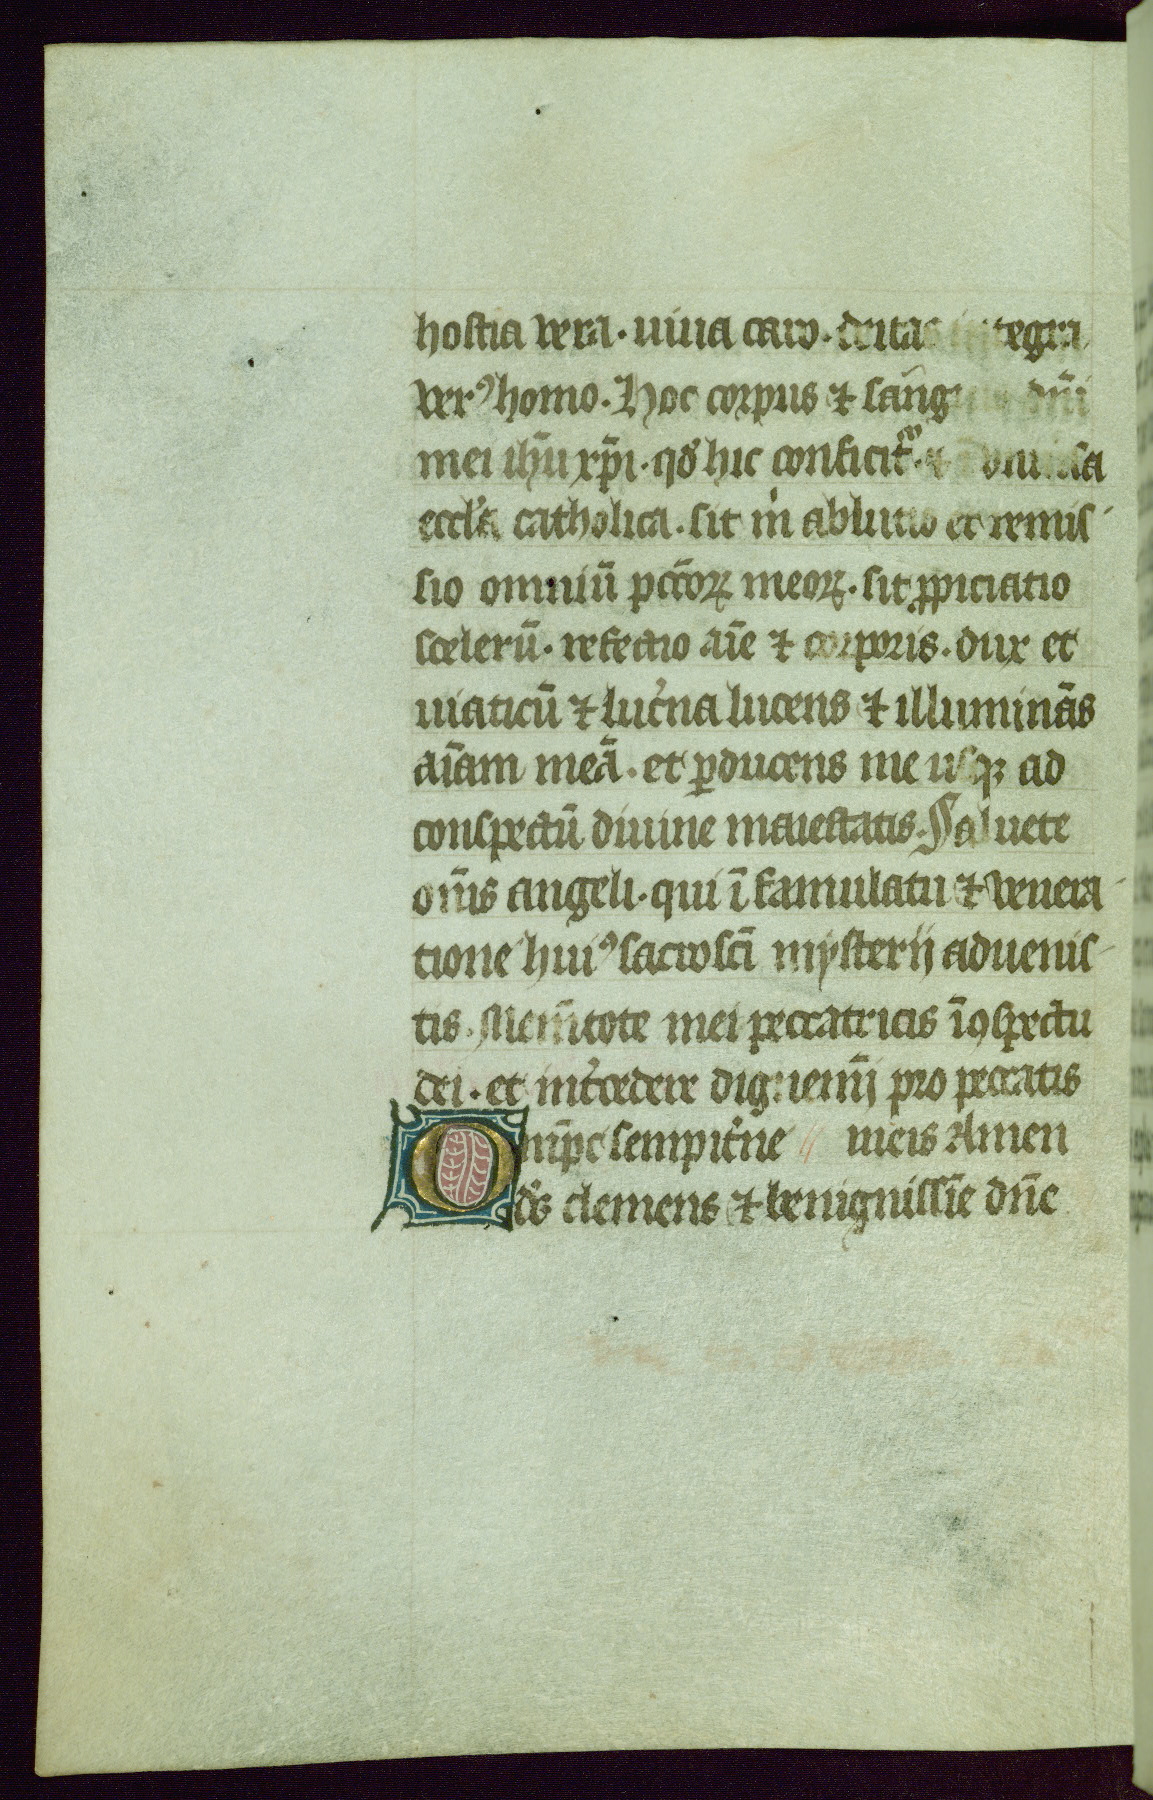 hostia vera · uiua caro · deitas integra
verꝰ homo · Hoc corpus ⁊ sang̅ dn̄i
mei ih̅u xp̅i · qd̕ hic conficit᷑ ·
eccl̕a catholica · sit m̍ ablutio et remis
sio omniū pcc̄oꝝ meoꝝ · sit ꝓpiciatio
scelerū · refectio aīe ⁊ corporis · dux et
uiaticū ⁊ luc̕na lucens ⁊ illuminās
aīam meā · et ꝑducens me usqꝫ ad
conspectū diuine maiestatis · Saluete
om̄s angeli · qui ī famulatu ⁊ venera
tione huiꝰ sacrosc̄i mysterij aduenis
tis · Mem̄tote mei peccatricis ī ꝯspectu
dei · et int̕cedere dignem̄j pro peccatis
Om̄pc sempit̕ne // meis Amen
ds̕ clemens ⁊ benignissīe dn̄e